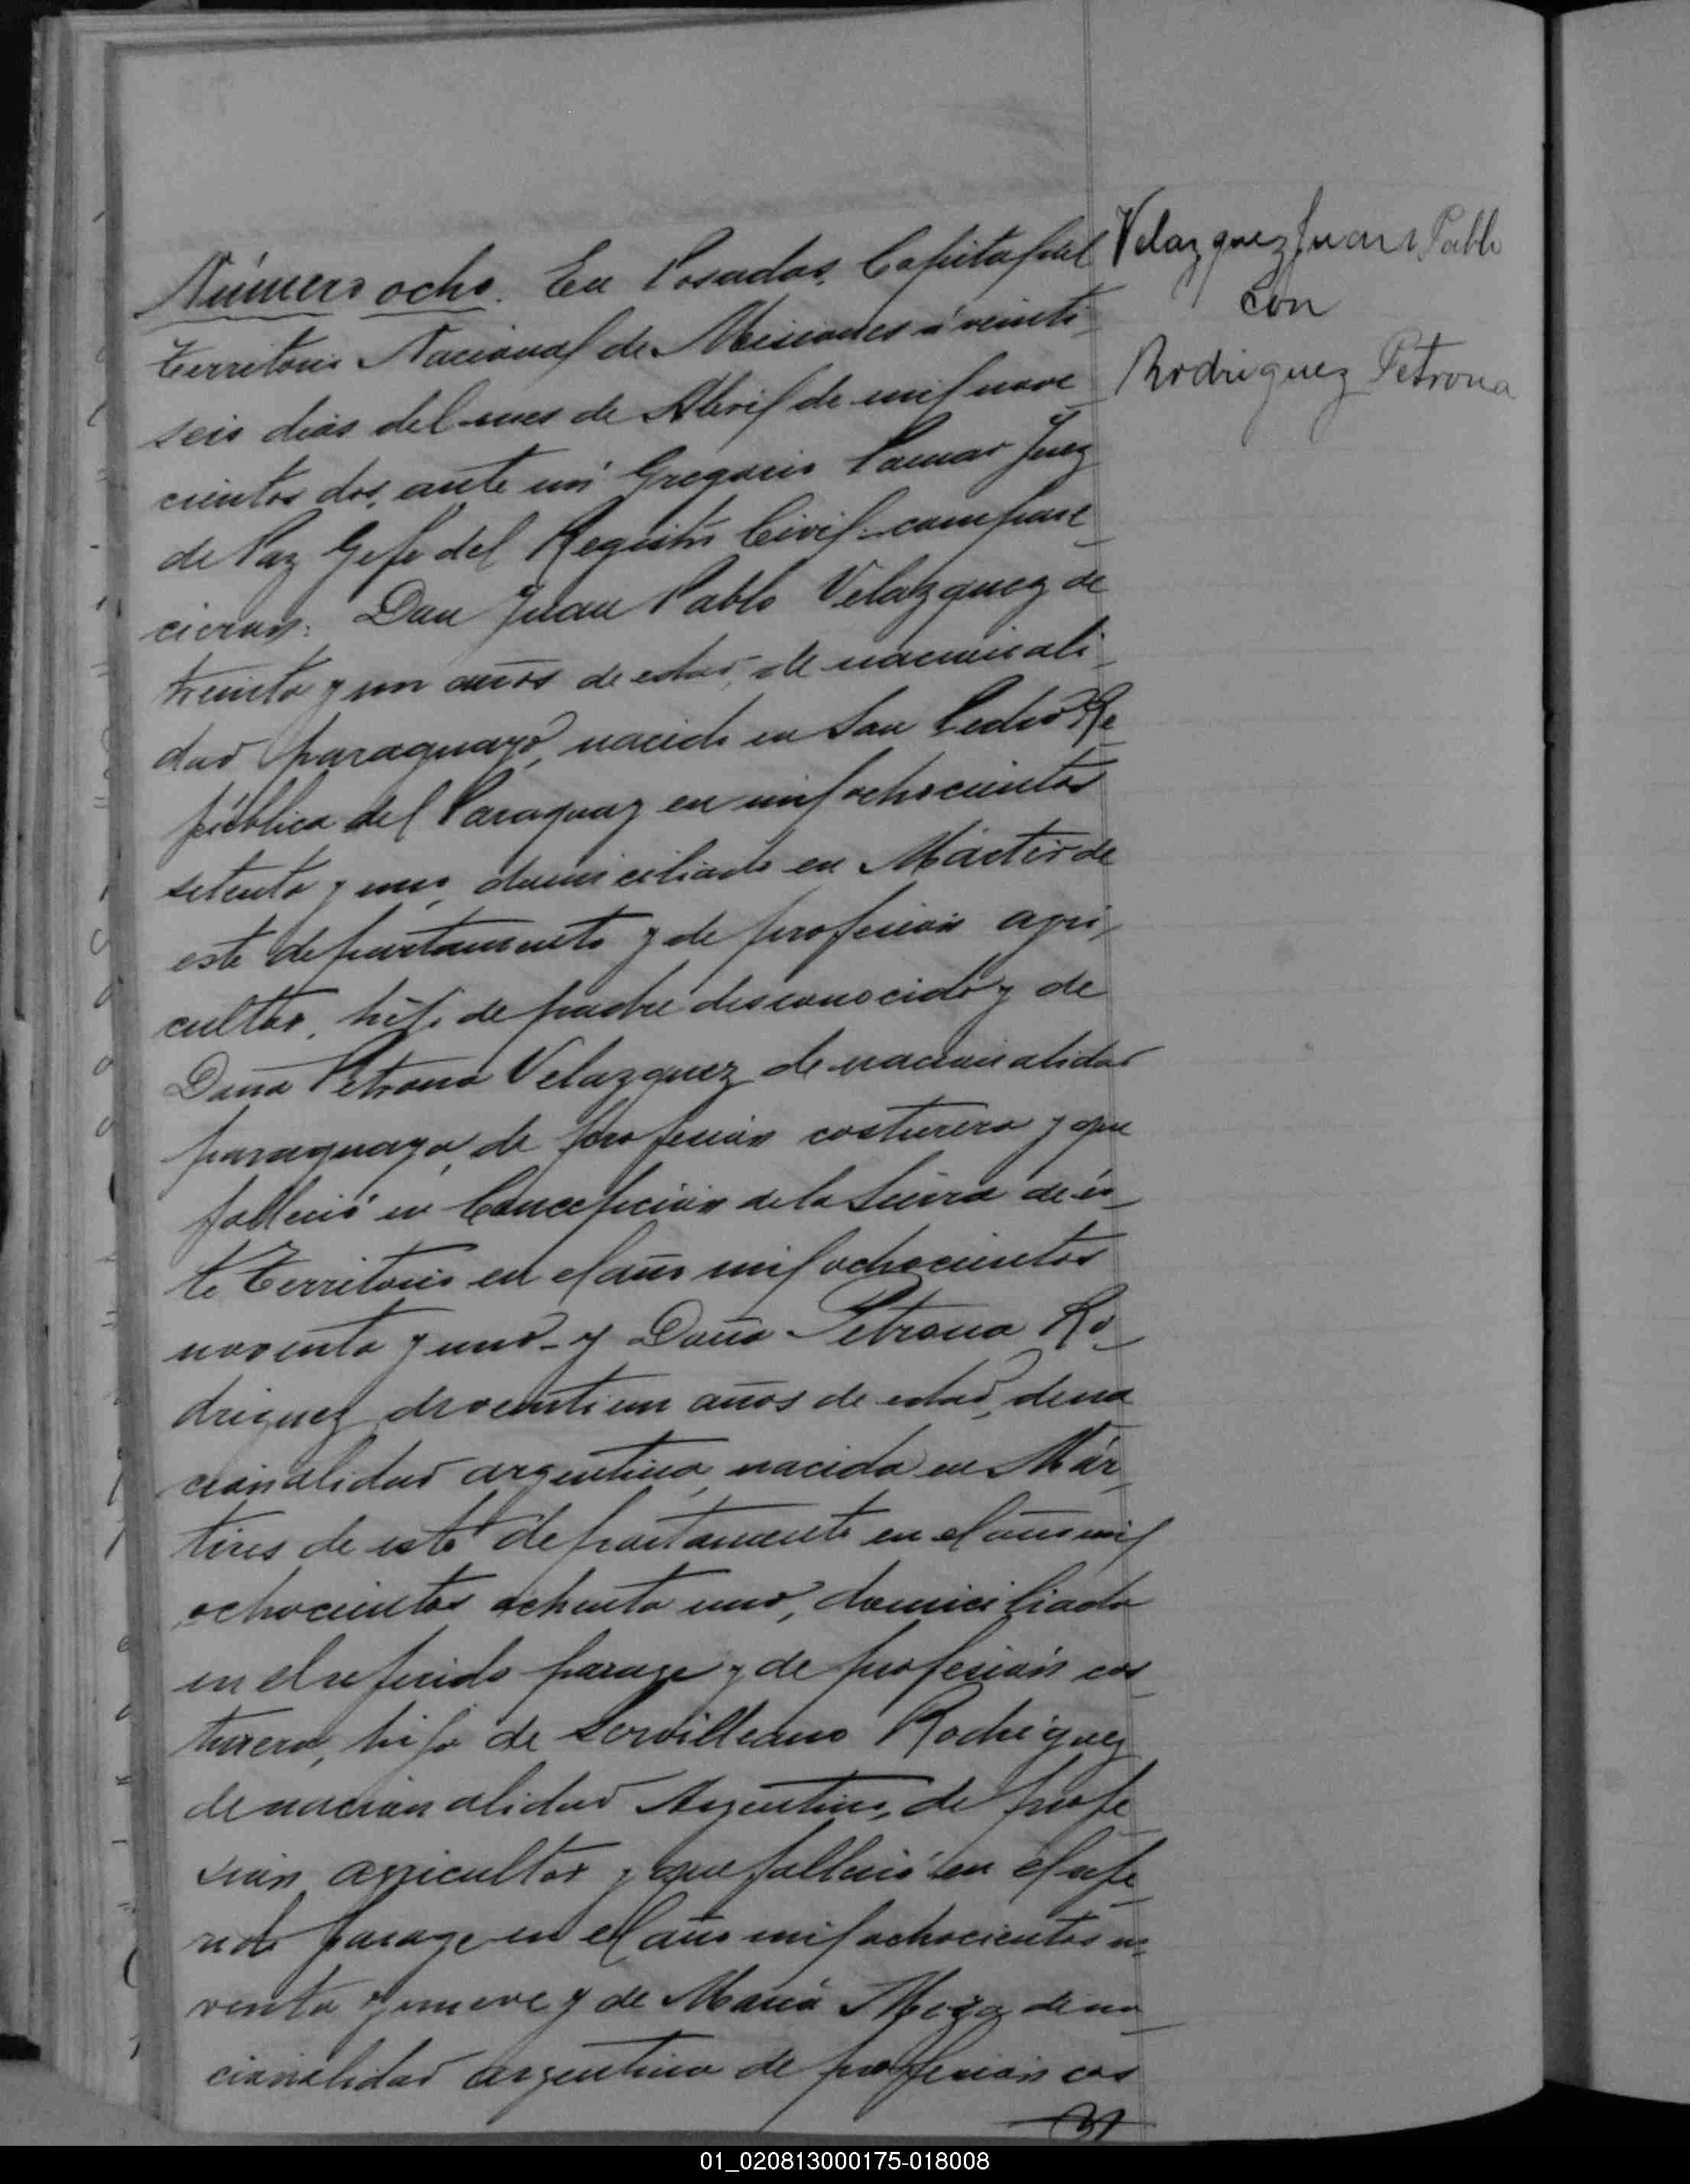 Número ocho. En Posadas, Capital del
territorio Nacional de Misiones á veinti
seis dias del mes de Abril de mil nove
cientos dos, ante mi Gregorio Pomar Juez
de Paz Gefe del Registro Civil: compare
cieron: Don Juan Pablo Velazquez de
treinta y un años de edad, de nacionali
dad paraguayo, nacido en San Pedro Re
pública del Paraguay en mil ochocientos
setenta y uno, domiciliado en Mártir de
este departamento y de profesion agri
cultor, hijo de padre desconocido y de
Doña Petrona Velazquez de nacionalidad
paraguaya, de profesion costurera y que
falleció en Concepcion de la Sierra de és
te Territorio en el año mil ochocientos
noventa y uno - y Doña Petrona Ro
driguez de veintiun años de edad, de na
cionalidad argentina, nacida en Már
tires de este departamento en el año mil
ochocientos ochenta uno, domiciliada
en el referido parage y de profesión cos
turera, hija de Servilleano Rodriguez
de nacionalidad Argentino, de profe
sion agricultor y que falleció en el refe
rido parage en el año mil ochocientos no
venta y nueve y de Maria Meza de na
cionalidad argentina de profesión cos
Velazquez Juan Pablo
con
Rodriguez Petrona
01_020813000175-018008